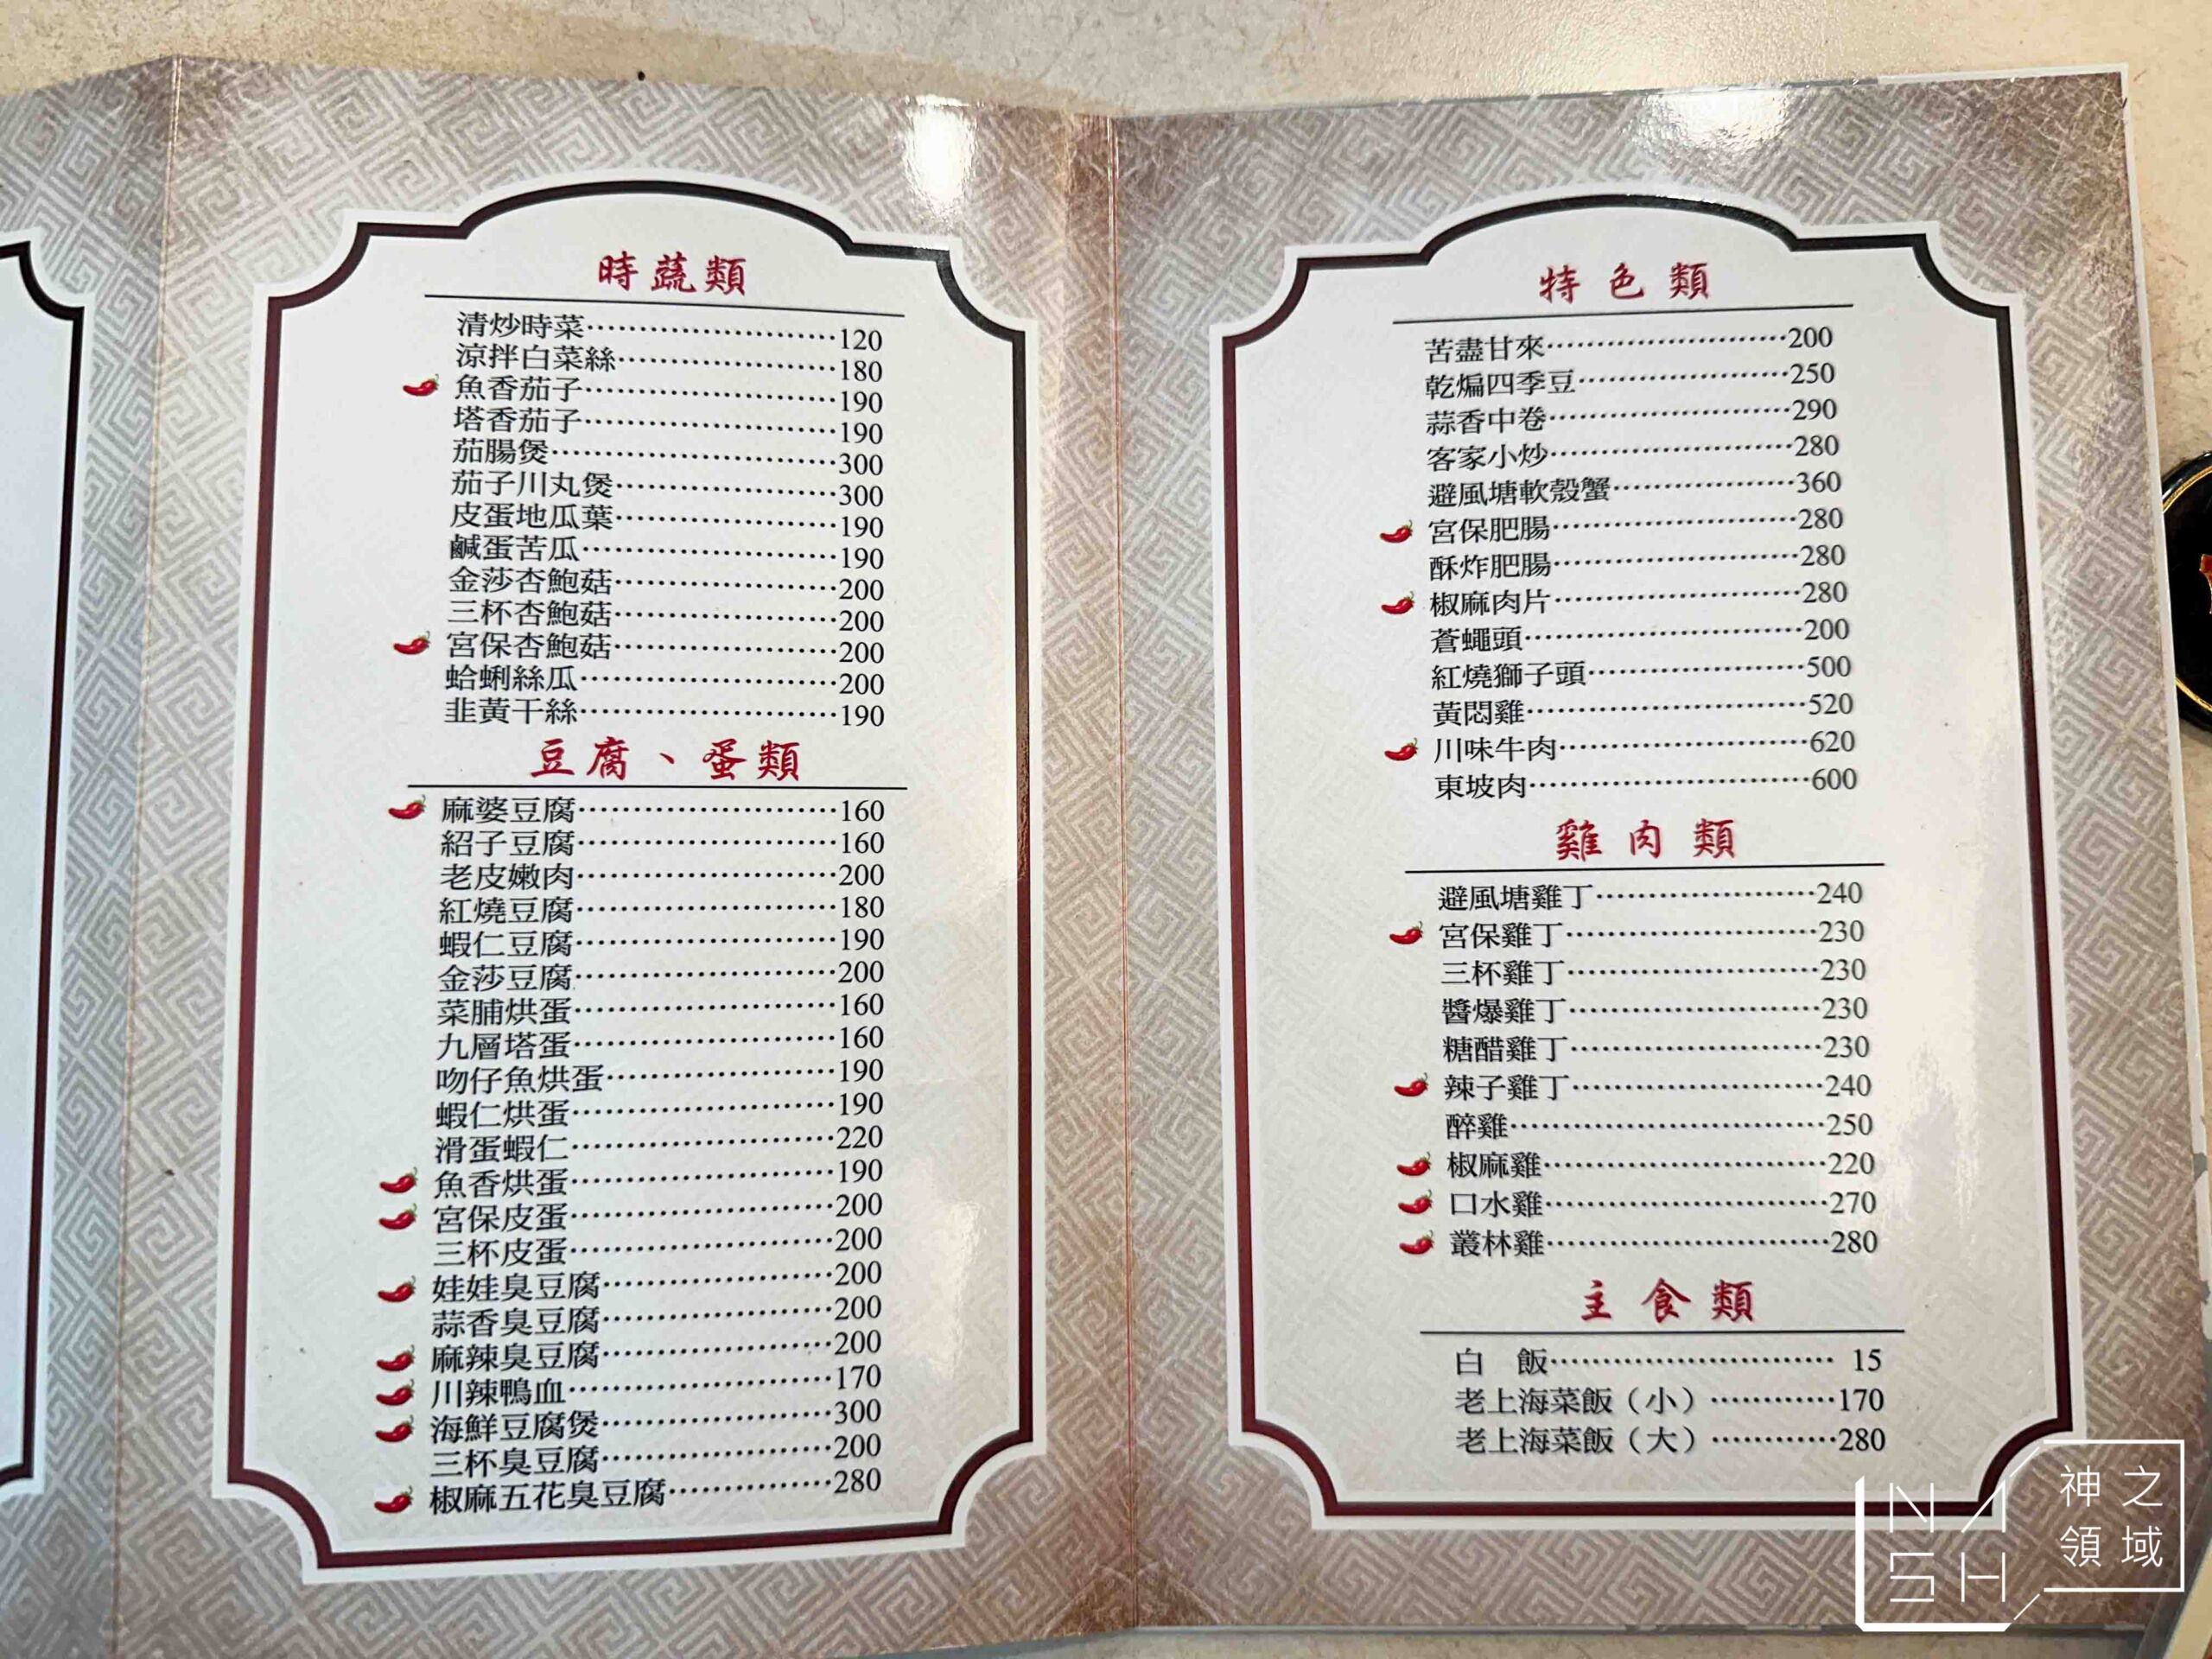 時蔬類
清炒時菜························120
涼拌白菜絲·····················180
魚香茄子························190
塔香茄子························190
茄腸煲···························300
茄子川丸煲·····················300
皮蛋地瓜葉·····················190
鹹蛋苦瓜························190
金莎杏鮑菇·····················200
三杯杏鮑菇·····················200
宮保杏鮑菇·····················200
蛤蜊絲瓜························200
韭黃干絲························190
豆腐、蛋類
麻婆豆腐························160
紹子豆腐························160
老皮嫩肉························200
紅燒豆腐························180
蝦仁豆腐························190
金莎豆腐························200
菜脯烘蛋························160
九層塔蛋························160
吻仔魚烘蛋·····················190
蝦仁烘蛋························190
滑蛋蝦仁························220
魚香烘蛋························190
宮保皮蛋························200
三杯皮蛋························200
娃娃臭豆腐·····················200
蒜香臭豆腐·····················200
麻辣臭豆腐·····················200
川辣鴨血························170
海鮮豆腐煲·····················300
三杯臭豆腐·····················200
椒麻五花臭豆腐···············280
特色類
苦盡甘來························200
乾煸四季豆·····················250
蒜香中卷························290
客家小炒························280
避風塘軟殼蟹··················360
宮保肥腸························280
酥炸肥腸························280
椒麻肉片························280
蒼蠅頭···························200
紅燒獅子頭·····················500
黃悶雞···························520
川味牛肉························620
東坡肉···························600
雞肉類
避風塘雞丁·····················240
宮保雞丁························230
三杯雞丁························230
醬爆雞丁························230
糖醋雞丁························230
辣子雞丁························240
醉雞······························250
椒麻雞···························220
口水雞···························270
叢林雞···························280
主食類
白　飯··························· 15
老上海菜飯（小）············170
老上海菜飯（大）············280
NASH
神之領域